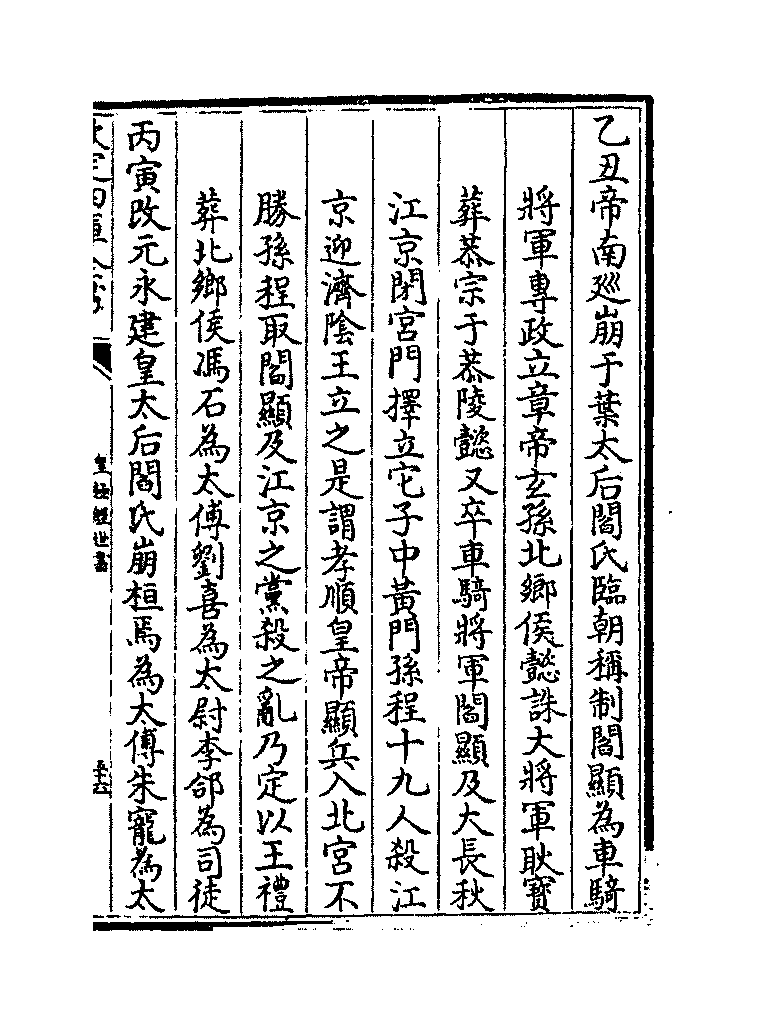 乙丑帝南廵崩于葉太后閻氏臨朝稱制閻顯為車騎
將軍專政立章帝玄孫北鄉侯懿誅大將軍耿寶
葬恭宗于恭陵懿又卒車騎將軍閻顯及大長秋
江京閉宮門擇立它子中黃門孫程十九人殺江
京迎濟陰王立之是謂孝順皇帝顯兵入北宮不
勝孫程取閻顯及江京之黨殺之亂乃定以王禮
葬北鄉侯馮石為太傅劉喜為太尉李郃為司徒
丙寅改元永建皇太后閻氏崩桓焉為太傅朱寵為太
皇極經世書
五十六